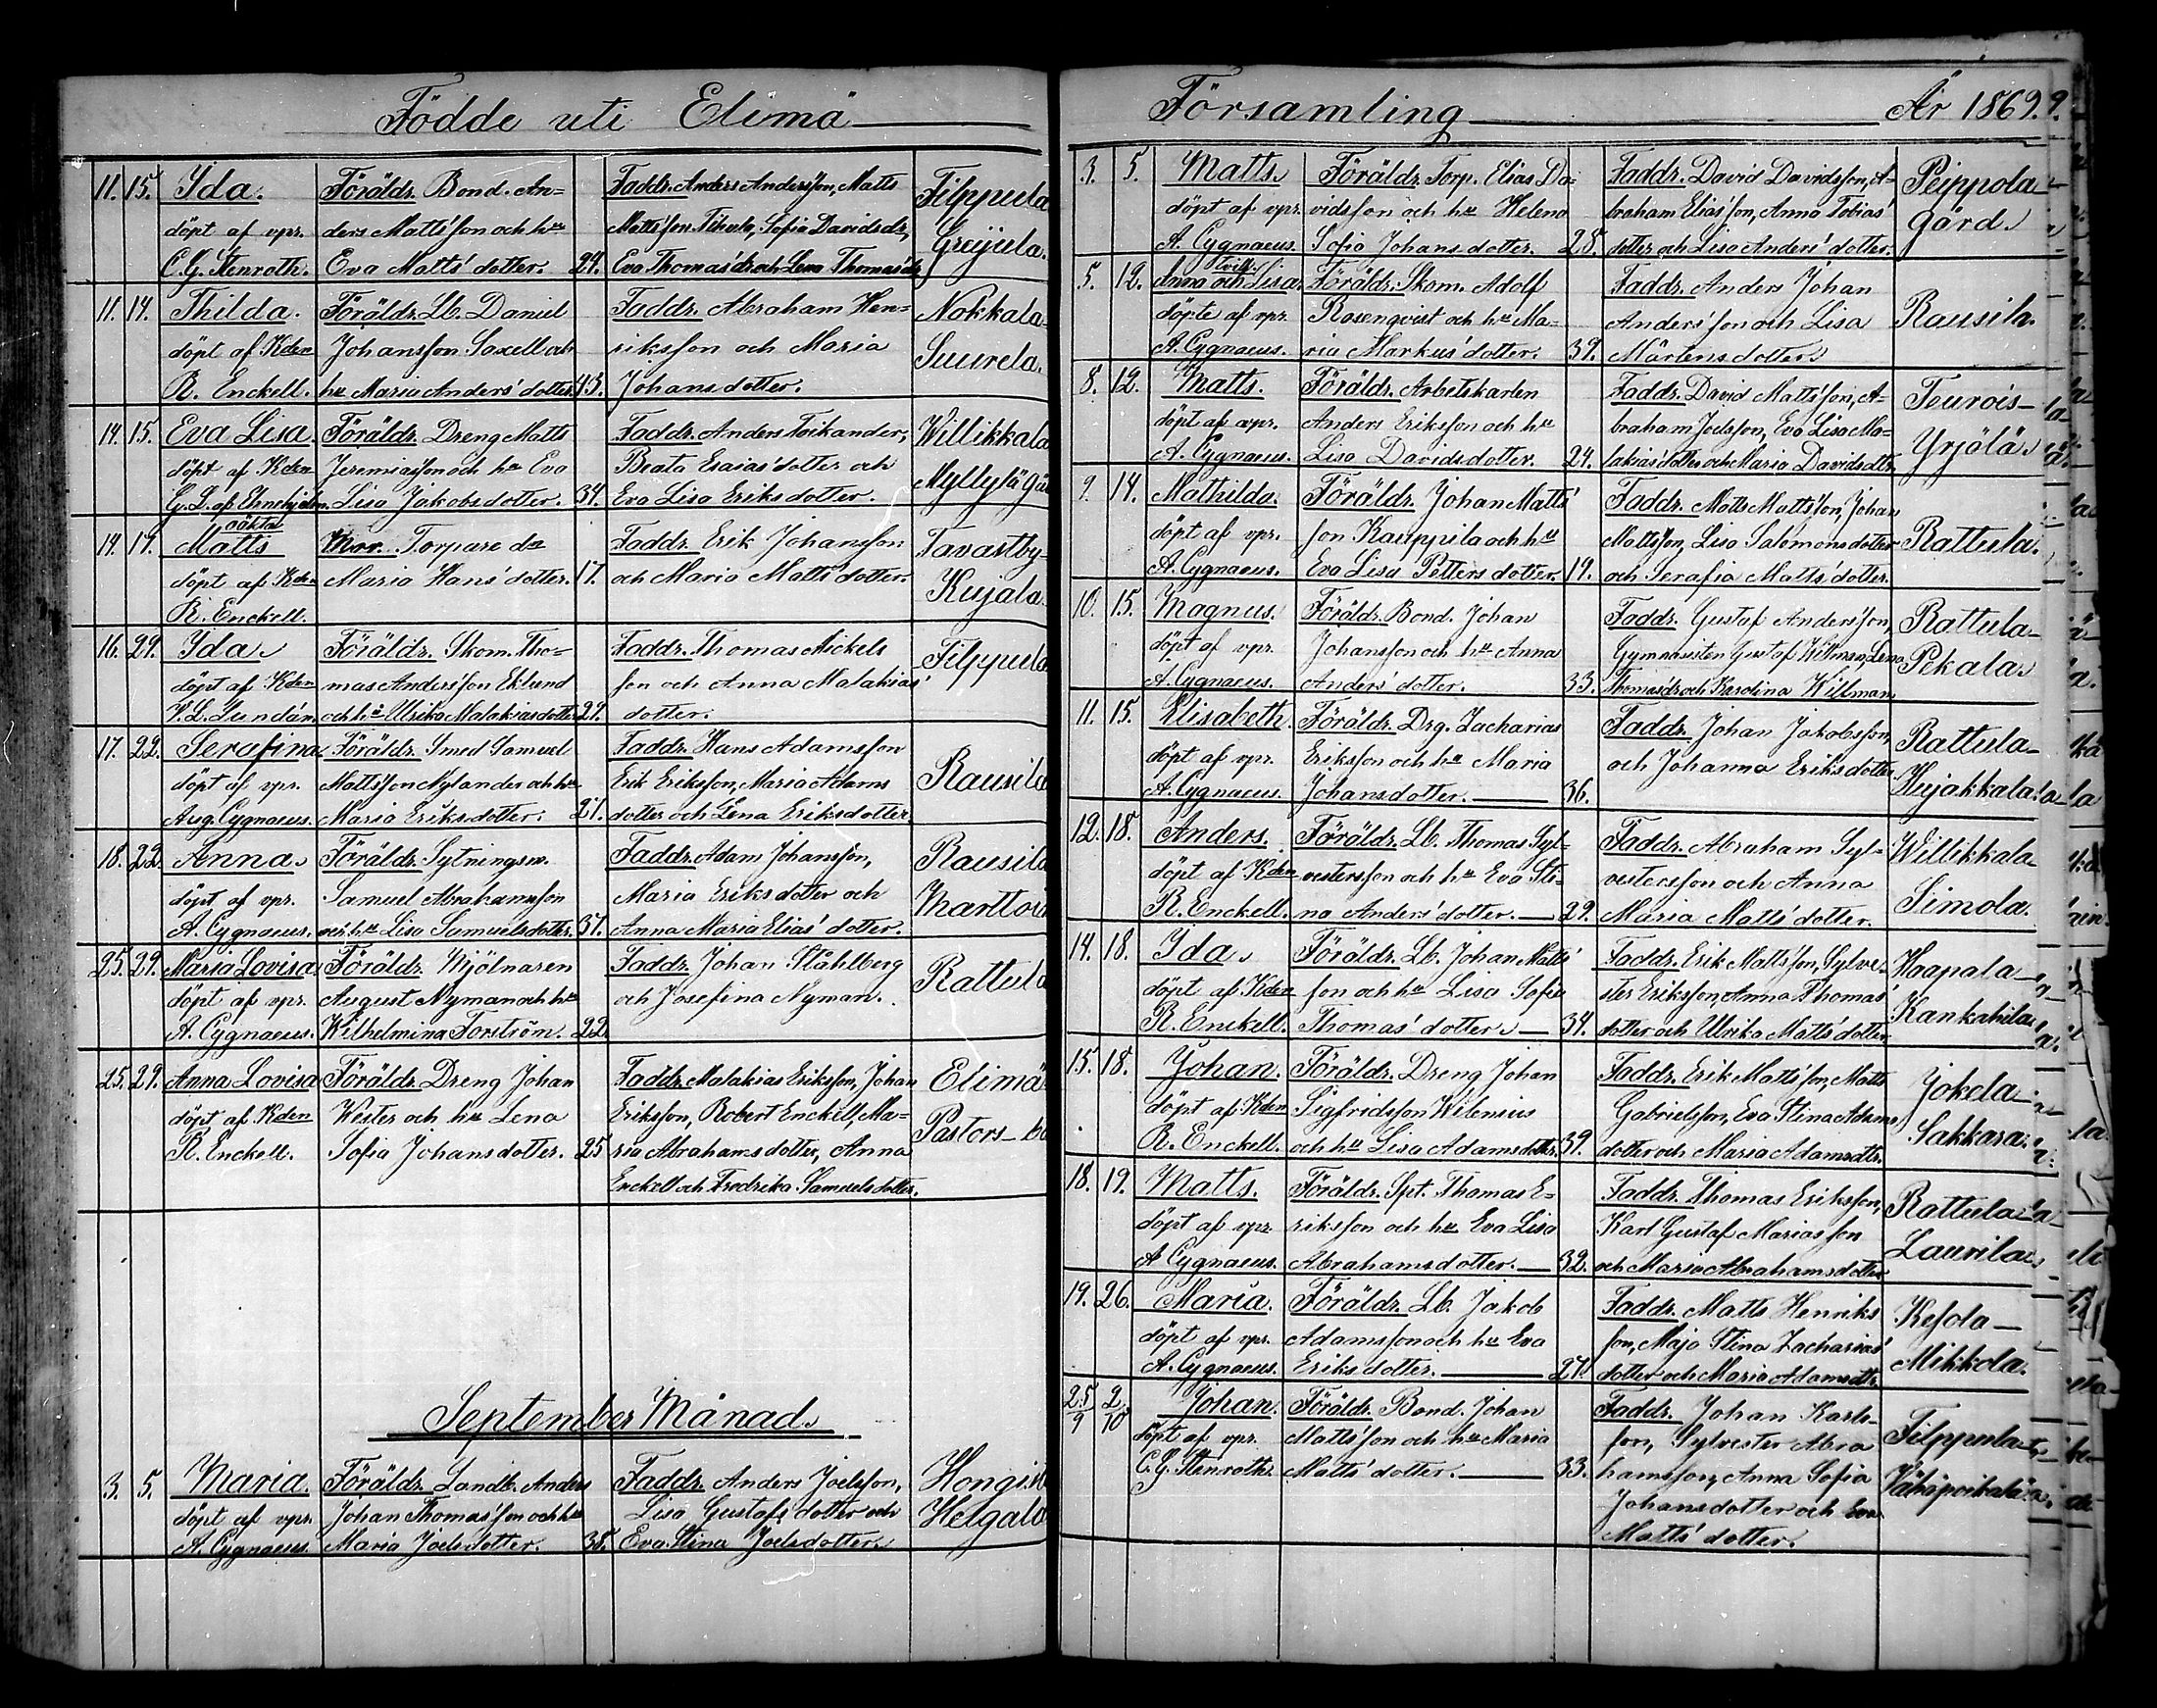 Födde uti Elimä
11. 15. Ida. Föräldr. Bond. An= Faddr. Anders Andersson, Matts Filppula
döpt af vpr. ders Mattsson och hu Mattsson Tihula, Sofia Davidsdr, Greijula.
C. G. Stenroth. Eva Matts'dotter. 24. Eva Thomas'dr och Lena Thomas'dr
11. 14. Thilda. Föräldr. Lb. Daniel Faddr. Abraham Hen= Nokkala
döpt af Kden Johansson Saxell och riksson och Maria Suurela.
R. Enckell. hu Maria Anders'dotter 43. Johansdotter.
14. 15. Eva Lisa. Föräldr. Dreng Matts Faddr. Anders Toikander, Willikkala
döpt af Kden Jeremiasson och hu Eva Beata Esaias'dotter och Myllylä
Lisa Jakobsdotter. 34. Eva Lisa Eriksdotter.
oäkta
14. 19. Matts Mor. Torpare dr Faddr. Erik Johansson Tavastby
döpt af Kden Maria Hans'dotter. 17. och Maria Matts'dotter. Kujala.
R. Enckell.
16. 29. Ida. Föräldr. Skom. Tho= Faddr. Thomas Mickels Filppula
döpt af Kden mas Andersson Eklund son och Anna Malakias'
V. L. Lundán. och hu Ulrika Malakiasdotter 29. dotter.
17. 22. Serafina Föräldr. Smed Samuel Faddr. Hans Adamsson
döpt af vpr. Mattsson Nylander och hu Erik Eriksson, Maria Adams Rausila
Aug. Cygnaeus. Maria Eriksdotter. 21. dotter och Lena Eriksdotter
18. 22. Anna. Föräldr. Sytningsm. Faddr. Adam Johansson, Rausila
döpt af vpr. Samuel Abrahamsson Maria Eriksdotter och Marttoi
A. Cygnaeus. och hu Lisa Samuelsdotter. 37. Anna Maria Elias'dotter.
25. 29. Maria Lovisa Föräldr. Mjölnaren Faddr. Johan Ståhlberg Rattula
döpt af vpr. August Nyman och hu och Josefina Nyman.
A. Cygnaeus. Wilhelmina Forström. 22.
25. 29. Anna Lovisa Föräldr. Dreng Johan Faddr. Malakias Eriksson, Johan Elimä
döpt af Kden Wester och hu Lena Eriksson, Robert Enckell, Ma= Pastors-bo
R. Enckell. Sofia Johansdotter. 25 ria Abrahamsdotter, Anna
Enckell och Fredrika Samuelsdotter.
September Månad.
3. 5. Maria. Föräldr. Landb. Anders Faddr. Anders Joelsson, Hongist
döpt af vpr. Johan Thomas'son och hu Lisa Gustafsdotter och Helgala
A. Cygnaeus. Maria Joelsdotter. 38. Eva Stina Joelsdotter.
Församling År 1869.
3. 5. Matts. Föräldr. Torp. Elias Da= Faddr. David Davidsson, A= Peippola
döpt af vpr. vidsson och hu Helena braham Elias'son, Anna Tobias' gård.
A. Cygnaeus. Sofia Johansdotter. 28. dotter och Lisa Anders'dotter.
Tvill.
5. 12. Anna och Lisa. Föräldr. Skom. Adolf Faddr. Anders Johan
döpte af vpr. Rosenqvist och hu Ma= Anders'son och Lisa Rausila.
A. Cygnaeus. ria Markus'dotter. 39. Mårtensdotter.
8. 12. Matts. Föräldr. Arbetskarlen Faddr. David Matts'son, A= Teurois-
döpt af vpr. Anders Eriksson och hu braham Joelsson, Eva Lisa Ma= Yrjölä.
A. Cygnaeus. Lisa Davidsdotter. 24. lakias'dotter och Maria Davidsdtr.
9. 14. Mathilda. Föräldr. Johan Matts' Faddr. Matts Matts'son, Johan
döpt af vpr. son Kauppila och hu Mattsson, Lisa Salomonsdotter Rattula.
A. Cygnaeus. Eva Lisa Pettersdotter. 19. och Serafia Matts'dotter.
10. 15. Magnus. Föräldr. Bond. Johan Faddr. Gustaf Anders'son, Rattula-
döpt af vpr. Johansson och hu Anna Gymnasisten Gustaf Willman, Lena Pekala.
A. Cygnaeus. Anders'dotter. 33. Thomas'dr och Karolina Willman
11. 15. Elisabeth. Föräldr. Drg. Zacharias Faddr. Johan Jakobsson, Rattula-
döpt af vpr. Eriksson och hu Maria och Johanna Eriksdotter Hujakkala.
A. Cygnaeus. Johansdotter. 36.
12. 18. Anders. Föräldr. Lb. Thomas Syl= Faddr. Abraham Syl= Willikkala-
döpt af Kden vestersson och hu Eva Sti= vestersson och Anna Simola.
R. Enckell. na Anders'dotter. 29. Maria Matts'dotter.
14. 18. Ida. Föräldr. Lb. Johan Matts' Faddr. Erik Matts'son, Sylve= Haapala-
döpt af Kden son och hu Lisa Sofia ster Eriksson, Anna Thomas' Kankahila
R. Enckell. Thomas'dotter. 34. dotter och Ulrika Matts'dotter
15. 18. Johan. Föräldr. Dreng Johan Faddr. Erik Matts'son, Matts Jokela-
döpt af Kden Sigfridsson Wilenius Gabrielsson, Eva Stina Adams Sakkara.
R. Enckell. och hu Lisa Adamsdotter. 39. dotter och Maria Adamsdtr.
18. 19. Matts. Föräldr. Spt. Thomas E= Faddr. Thomas Eriksson, Rattula-
döpt af vpr. riksson och hu Eva Lisa Karl Gustaf Mariasson Laurila
A Cygnaeus. Abrahamsdotter. 32. och Maria Abrahamsdotter
19. 26. Maria. Föräldr. Lb. Jakob Faddr. Matts Henriks Kesola-
döpt af vpr. Adamsson och hu Eva son, Maja Stina Zacharias' Mikkola.
A. Cygnaeus. Eriksdotter. 27. dotter och Maria Adamsdtr
25/9 2/10 Johan. Föräldr. Bond. Johan Faddr. Johan Karls- Filppula
döpt af vpr. Matts'son och hu Maria son, Sylvester Abra
C. G. Stenroth. Matts'dotter. 33. hamsson, Anna Sofia
Johansdotter och Eva
Matts'dotter.